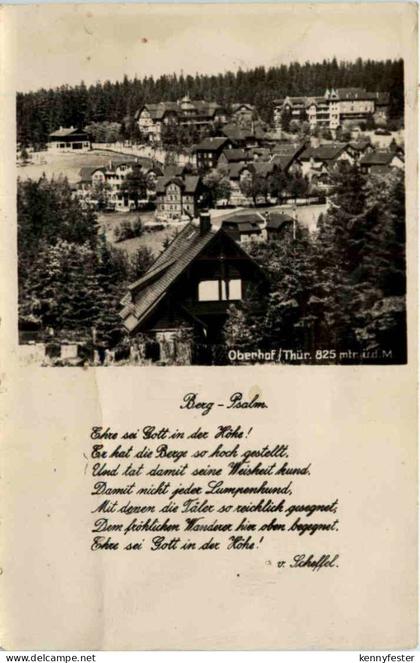 Oberhof/Thür. 825 mtr. ü.d.M
Berg-Psalm.
Ehre sei Gott in der Höhe!
Er hat die Berge so hoch gestellt,
Und tat damit seine Weisheit kund,
Damit nicht jeder Lumpenhund,
Mit denen die Täler so reichlich gesegnet,
Dem fröhlichen Wanderer hier oben begegnet,
Ehre sei Gott in der Höhe!
v. Scheffel.
kennyfester